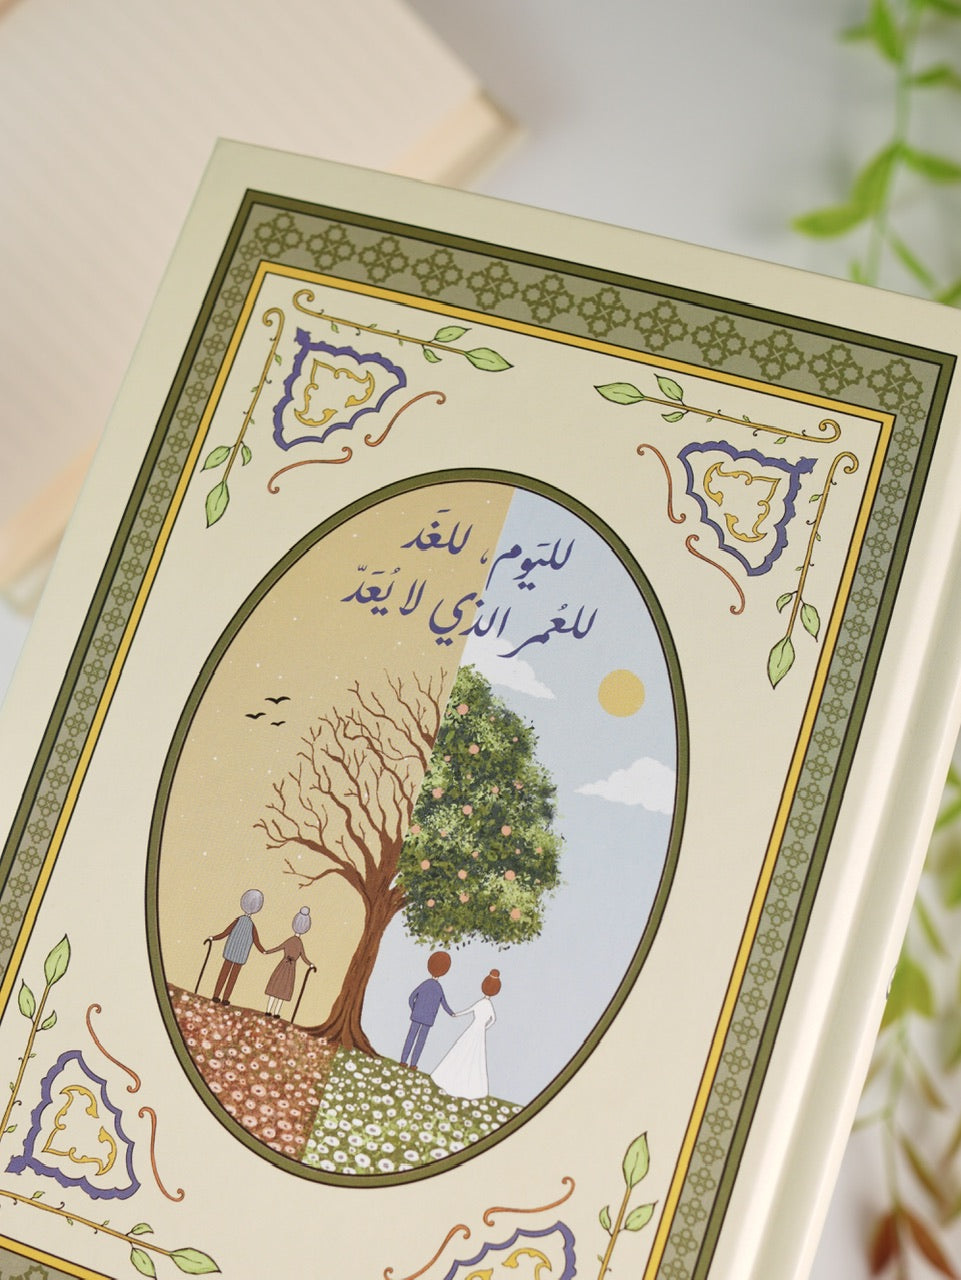 لليَوم، للغَد
للعُمر الذي لا يُعَدّ